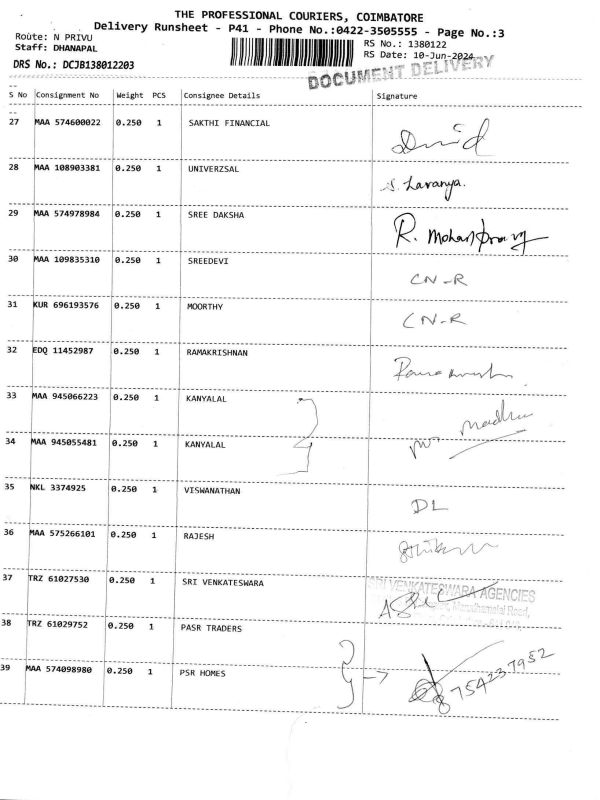 THE PROFESSIONAL COURIERS, COIMBATORE
Delivery Runsheet - P41 - Phone No.:0422-3505555 - Page No.:3
Route: N PRIVU RS No.: 1380122
Staff: DHANAPAL RS Date: 10-Jun-2024
DRS No.: DCJB138012203 DOCUMENT DELIVERY
--
S No Consignment No Weight PCS Consignee Details Signature
--
27 MAA 574600022 0.250 1 SAKTHI FINANCIAL
28 MAA 108903381 0.250 1 UNIVERZSAL S. Lavanya.
29 MAA 574978984 0.250 1 SREE DAKSHA R.
30 MAA 109835310 0.250 1 SREEDEVI CN-R
31 KUR 696193576 0.250 1 MOORTHY CN-R
32 EDQ 11452987 0.250 1 RAMAKRISHNAN
33 MAA 945066223 0.250 1 KANYALAL Madhu
34 MAA 945055481 0.250 1 KANYALAL
35 NKL 3374925 0.250 1 VISWANATHAN DL
36 MAA 575266101 0.250 1 RAJESH
37 TRZ 61027530 0.250 1 SRI VENKATESWARA SRI VENKATESWARA AGENCIES
38 TRZ 61029752 0.250 1 PASR TRADERS
39 MAA 574098980 0.250 1 PSR HOMES 8754237952